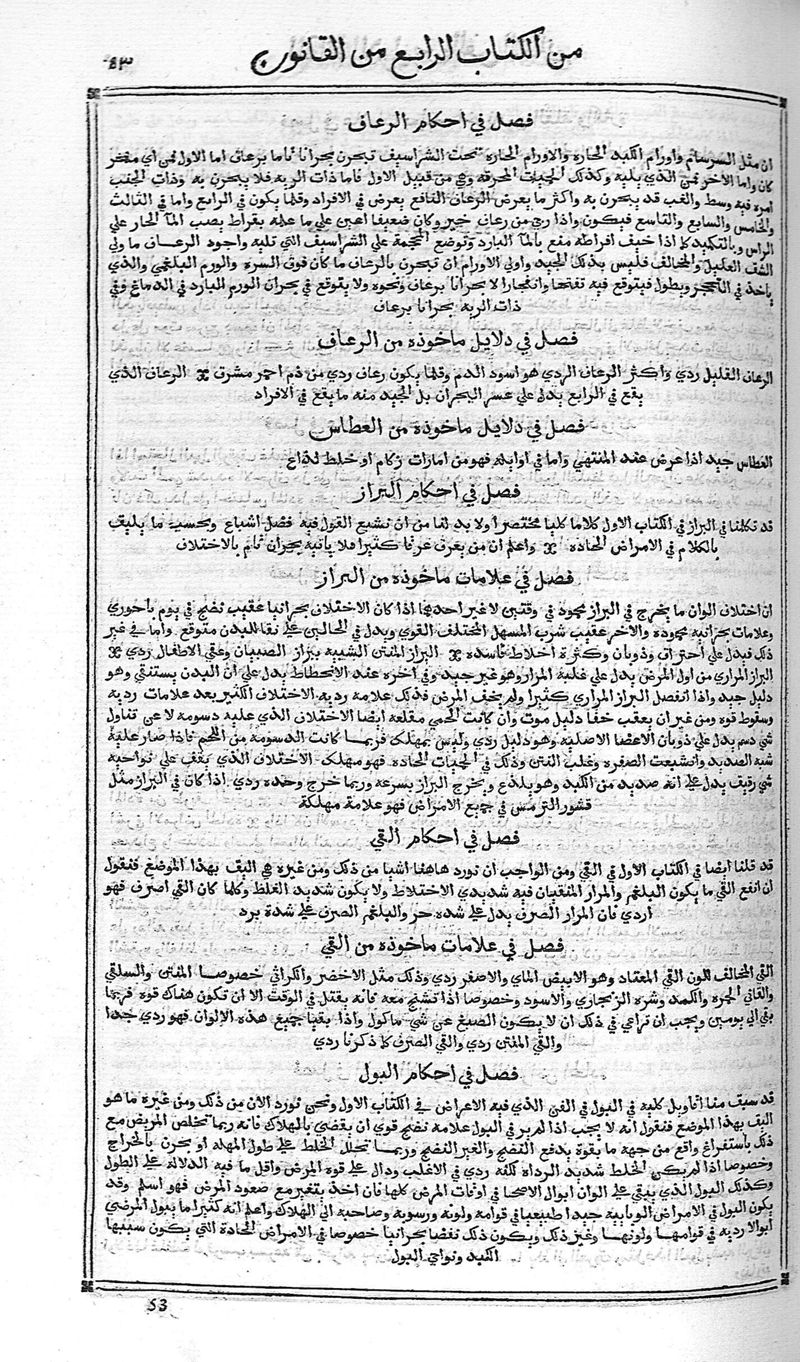 من الكتاب الرابع من القانون
٥٣
فصل في احكام الرعاف
ان مثل السرسام واورام الكبد الحاره والاورام الحاره تحت الشراسيف تبحرن بحرانا تاما برعاف اما الاول فمن اي منخر
كان واما الاخر فمن الذي يليه وكذلك الحميات المحرقه وهي من قبيل الاول فاما ذات الريه فلا يبحرن به وذات الجنب
امره فيه وسط والغب قد يبحرن به واكثر ما يعرض الرعاف النافع يعرض في الافراد وقلما يكون في الرابع واما في الثالث
والخامس والسابع والتاسع فيكون واذا رجي من رعاف خير وكان ضعيفا اعين علي ما علمه بقراط بصب المآ الحار علي
الراس وبالتكميد كما اذا خيف افراطه منع بالمآ البارد وتوضع المحجمة علي الشراسيف التي تليه واجود الرعاف ما ولي
الشق العليل والمخالف فليس بذلك الجيد واولي الاورام ان تبحرن بالرعاف ما كان فوق السره والورم البلغمي والذي
ياخذ في التحجر ويطول فيتوقع فيه تفتحا وانفجارا لا بحرانا برعاف ونحوه ولا يتوقع في بحران الورم البارد في الدماغ وفي
ذات الريه بحرانا برعاف
فصل في دلايل ماخوذه من الرعاف
الرعاف القليل ردي واكثر الرعاف الردي هو اسود الدم وقلما يكون رعاف ردي من دم احمر مشرق ※ الرعاف الذي
يقع في الرابع يدل علي عسر البحران بل الجيد منه ما يقع في الافراد
فصل في دلايل ماخوذه من العطاس
العطاس جيد اذا عرض عند المنتهي واما في اوايله فهو من امارات زكام او خلط لذاع
فصل في احكام البراز
قد تكلمنا في البراز في الكتاب الاول كلاما كليا مختصرا ولا بد لنا من ان نشبع القول فيه فضل اشباع وبحسب ما يليق
بالكلام في الامراض الحاده ※ واعلم ان من يعرق عرقا كثيرا فلا ياتيه بحران تام بالاختلاف
فصل في علامات ماخوذه من البراز
ان اختلاف الوان ما يخرج في البراز محمود في وقتين لا غير احدهما اذا كان الاختلاف بحرانيا عقيب نضج في يوم باحوري
وعلامات بحرانيه محموده والاخر عقيب شرب المسهل المختلف القوي ويدل في الحالين علي نقا للبدن متوقع واما في غير
ذلك فيدل علي احتراق وذوبان وكثرة اخلاط فاسده ※ البراز المنتن الشبيه ببراز الصبيان وعقي الاطفال ردي ※
البراز المراري من اول المرض يدل علي غلبة المرار وهو غير جيد وفي اخره عند الانحطاط يدل علي ان البدن يستنقي وهو
دليل جيد واذا انفصل البراز المراري كثيرا ولم يخف المرض فذلك علامة رديه الاختلاف الكثير بعد علامات رديه
وسقوط قوه ومن غير ان يعقب خفا دليل موت وان كانت الحمي مقلعه ايضا الاختلاف الذي عليه دسومه لا عن تناول
شي دسم يدل علي ذوبان الاعضا الاصليه وهو دليل ردي وليس بمهلك فربما كانت الدسومة من اللحم فاذا صار عليه
شبه الصديد وانشبعت الصفره وغلب النتن وذلك في الحميات الحاده فهو مهلك الاختلاف الذي يقف علي نواحيه
شي رقيق يدل علي انه صديد من الكبد وهو يلذع ويخرج البراز بسرعه وربما خرج وحده ردي اذا كان في البراز مثل
قشور الترمس في جميع الامراض فهو علامة مهلكة
فصل في احكام القي
قد قلنا ايضا في الكتاب الاول في القي ومن الواجب ان نورد هاهنا اشيا من ذلك ومن غيره هي اليق بهذا الموضع فنقول
ان انفع القي ما يكون البلغم والمرار المنقيان فيه شديدي الاختلاط ولا يكون شديد الغلظ وكلما كان القي اصرف فهو
اردي فان المرار الصرف يدل علي شده حر والبلغم الصرف علي شدة برد
فصل في علامات ماخوذه من القي
القي المخالف للون القي المعتاد وهو الابيض الماي والاصفر ردي وذلك مثل الاخضر والكراثي خصوصا المنتن والسلقي
والقاني الحمره والكمد وشره الزنجاري والاسود وخصوصا اذا تشنج معه فانه يقتل في الوقت الا ان تكون هناك قوه فربما
بقي الي يومين ويجب ان تراعي في ذلك ان لا يكون الصبغ عن شي ماكول واذا بقيا جميع هذه الالوان فهو ردي جدا
والقي المنتن ردي والقي الصرف كما ذكرنا ردي
فصل في احكام البول
قد سبق منا اقاويل كلية في البول في الفن الذي فيه الاعراض في الكتاب الاول ونحن نورد الان من ذلك ومن غيره ما هو
اليق بهذا الموضع فنقول انه لا يجب اذا لم ير في البول علامة نضج قوي ان يقضي بالهلاك فانه ربما تخلص المريض مع
ذلك باستفراغ واقع من جهة ما بقوه يدفع النضج والغير النضج وربما تحلل الخلط علي طول المهله او بحرن بالخراج
وخصوصا اذا لم يكن الخلط شديد الرداه لكنه ردي في الاغلب ودال علي قوه المرض واقل ما فيه الدلاله علي الطول
وكذلك البول الذي يبقي علي الوان ابوال الاصحا في اوقات المرض كلها فان اخذ يتغير مع صعود المرض فهو اسلم وقد
يكون البول في الامراض الوبايية جيدا طبيعيا في قوامه ولونه ورسوبه وصاحبه الي الهلاك واعلم انه كثيرا ما يبول المرضي
ابوالا رديه في قوامها ولونها وغير ذلك ويكون ذلك نفضا بحرانيا خصوصا في الامراض الحادة التي يكون سببها
الكبد ونواحي البول
53